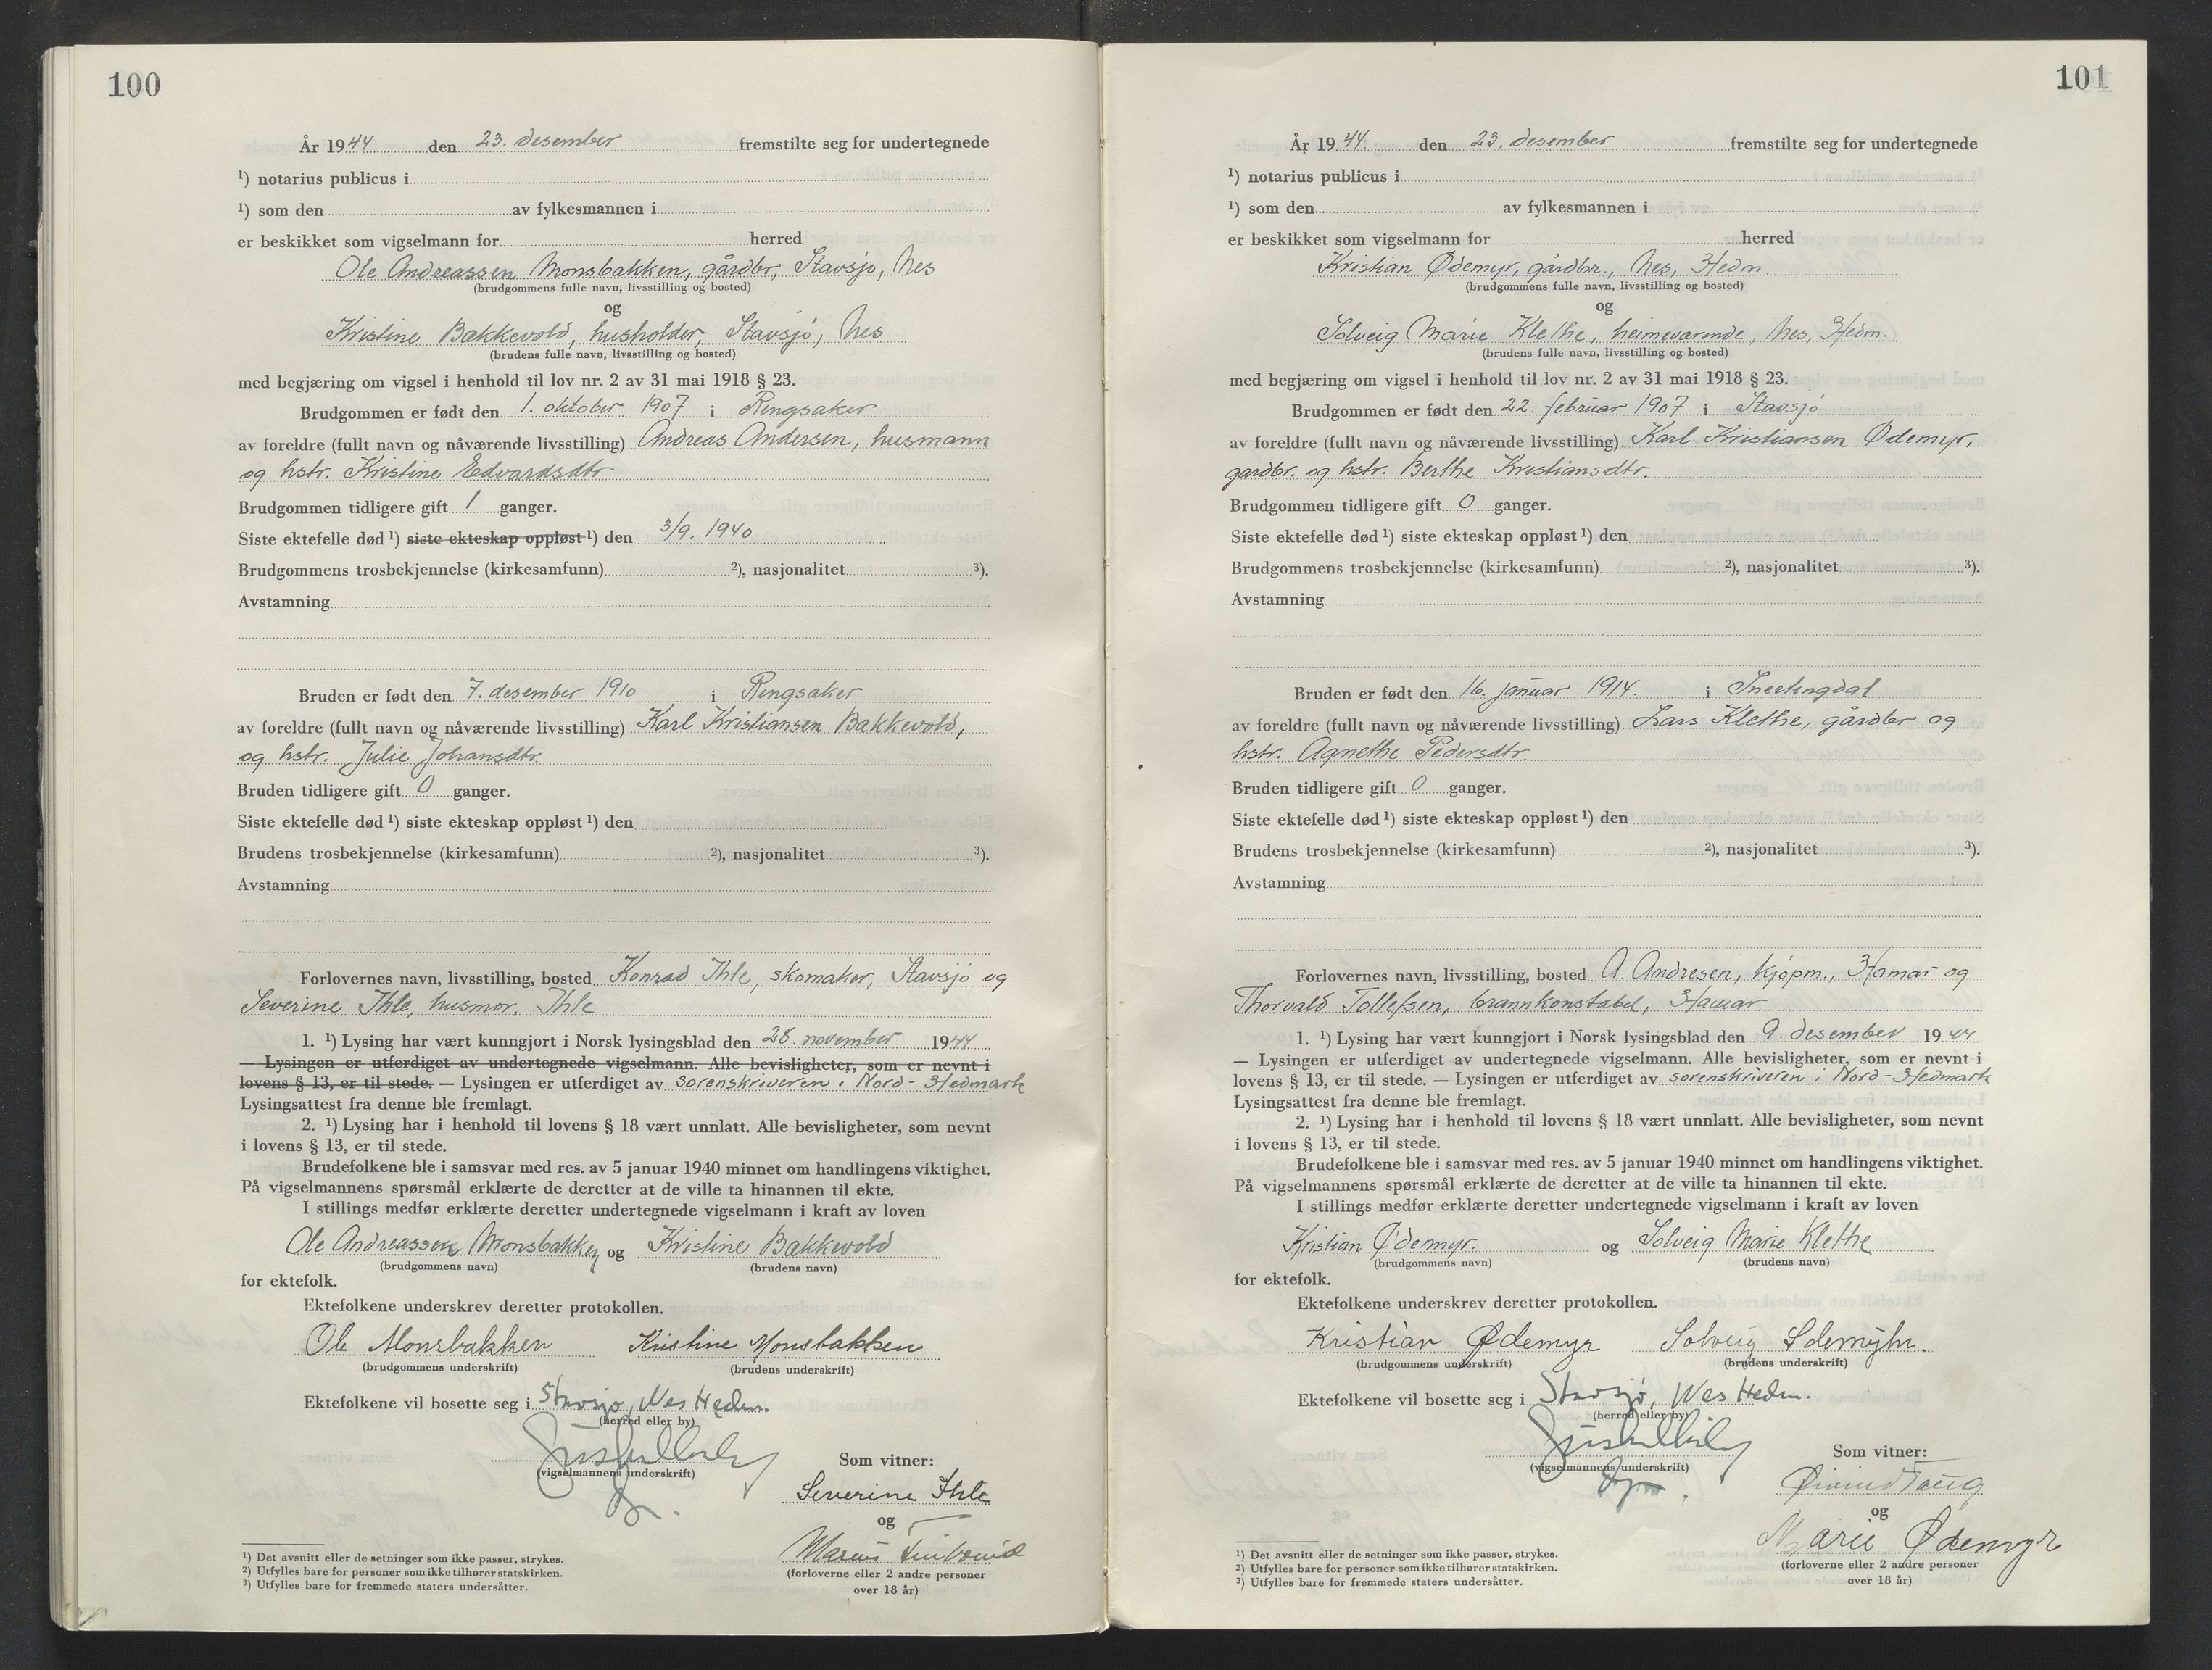 100
År 1944 den 23. desember fremstilte seg for undertegnede
¹) notarius publicus i
¹) som den av fylkesmannen i
er beskikket som vigselmann for herred
Ole Andreassen Monsbakken, gårdbr, Stavsjø, Nes
(brudgommens fulle navn, livsstilling og bosted)
og
Kristine Bakkevold, husholder, Stavsjø, Nes
(brudens fulle navn, livsstilling og bosted)
med begjæring om vigsel i henhold til lov nr. 2 av 31 mai 1918 § 23.
Brudgommen er født den 1. oktober 1907 i Ringsaker
av foreldre (fullt navn og nåværende livsstilling) Andreas Andersen, husmann
og hstr. Kristine Edvardsdtr
Brudgommen tidligere gift 1 ganger.
Siste ektefelle død ¹) siste ekteskap oppløst ¹) den 3/9. 1940
Brudgommens trosbekjennelse (kirkesamfunn) ²), nasjonalitet ³).
Avstamning
Bruden er født den 7. desember 1910 i Ringsaker
av foreldre (fullt navn og nåværende livsstilling) Karl Kristiansen Bakkevold,
og hstr. Julie Johansdtr.
Bruden tidligere gift 0 ganger.
Siste ektefelle død ¹) siste ekteskap oppløst ¹) den
Brudens trosbekjennelse (kirkesamfunn) ²), nasjonalitet ³).
Avstamning
Forlovernes navn, livsstilling, bosted Konrad Ihle, skomaker, Stavsjø og
Severine Ihle, husmor, Ihle
1. ¹) Lysing har vært kunngjort i Norsk lysingsblad den 28. november 1944
— Lysingen er utferdiget av undertegnede vigselmann. Alle bevisligheter, som er nevnt i
lovens § 13, er til stede. — Lysingen er utferdiget av sorenskriveren i Nord-Hedmark
Lysingsattest fra denne ble fremlagt.
2. ¹) Lysing har i henhold til lovens § 18 vært unnlatt. Alle bevisligheter, som nevnt
i lovens § 13, er til stede.
Brudefolkene ble i samsvar med res. av 5 januar 1940 minnet om handlingens viktighet.
På vigselmannens spørsmål erklærte de deretter at de ville ta hinannen til ekte.
I stillings medfør erklærte deretter undertegnede vigselmann i kraft av loven
Ole Andreassen Monsbakken og Kristine Bakkevold
(brudgommens navn) (brudens navn)
for ektefolk.
Ektefolkene underskrev deretter protokollen.
Ole Monsbakken Kristine Monsbakken
(brudgommens underskrift) (brudens underskrift)
Ektefolkene vil bosette seg i Stavsjø, Nes Hedm.
(herred eller by)
(vigselmannens underskrift)
Som vitner:
Severine Ihle
og
(forloverne eller 2 andre personer
over 18 år)
¹) Det avsnitt eller de setninger som ikke passer, strykes.
²) Utfylles bare for personer som ikke tilhører statskirken.
³) Utfylles bare for fremmede staters undersåtter.
101
År 1944. den 23. desember fremstilte seg for undertegnede
¹) notarius publicus i
¹) som den av fylkesmannen i
er beskikket som vigselmann for herred
Kristian Ødemyr, gårdbr., Nes, Hedm.
(brudgommens fulle navn, livsstilling og bosted)
og
Solveig Marie Klethe, heimeværende, Nes, Hedm.
(brudens fulle navn, livsstilling og bosted)
med begjæring om vigsel i henhold til lov nr. 2 av 31 mai 1918 § 23.
Brudgommen er født den 22. februar 1907 i Stavsjø
av foreldre (fullt navn og nåværende livsstilling) Karl Kristiansen Ødemyr,
gardbr. og hstr. Berthe Kristiansdtr.
Brudgommen tidligere gift 0 ganger.
Siste ektefelle død ¹) siste ekteskap oppløst ¹) den
Brudgommens trosbekjennelse (kirkesamfunn) ²), nasjonalitet ³).
Avstamning
Bruden er født den 16. januar 1914. i Snertingdal
av foreldre (fullt navn og nåværende livsstilling) Lars Klethe, gårdbr og
hstr. Agnethe Pedersdtr.
Bruden tidligere gift 0 ganger.
Siste ektefelle død ¹) siste ekteskap oppløst ¹) den
Brudens trosbekjennelse (kirkesamfunn) ²), nasjonalitet ³).
Avstamning
Forlovernes navn, livsstilling, bosted A. Andresen, kjøpm., Hamar og
Thorvald Tollefsen, brannkonstabel, Hamar
1. ¹) Lysing har vært kunngjort i Norsk lysingsblad den 9. desember 1944
— Lysingen er utferdiget av undertegnede vigselmann. Alle bevisligheter, som er nevnt i
lovens § 13, er til stede. — Lysingen er utferdiget av sorenskriveren i Nord-Hedmark
Lysingsattest fra denne ble fremlagt.
2. ¹) Lysing har i henhold til lovens § 18 vært unnlatt. Alle bevisligheter, som nevnt
i lovens § 13, er til stede.
Brudefolkene ble i samsvar med res. av 5 januar 1940 minnet om handlingens viktighet.
På vigselmannens spørsmål erklærte de deretter at de ville ta hinannen til ekte.
I stillings medfør erklærte deretter undertegnede vigselmann i kraft av loven
Kristian Ødemyr. og Solveig Marie Klethe
(brudgommens navn) (brudens navn)
for ektefolk.
Ektefolkene underskrev deretter protokollen.
Kristian Ødemyr Solveig
(brudgommens underskrift) (brudens underskrift)
Ektefolkene vil bosette seg i Stavsjø, Nes Hedm.
(herred eller by)
(vigselmannens underskrift)
Som vitner:
Øivind Haug
og
Marie Ødemyr
(forloverne eller 2 andre personer
over 18 år)
¹) Det avsnitt eller de setninger som ikke passer, strykes.
²) Utfylles bare for personer som ikke tilhører statskirken.
³) Utfylles bare for fremmede staters undersåtter.